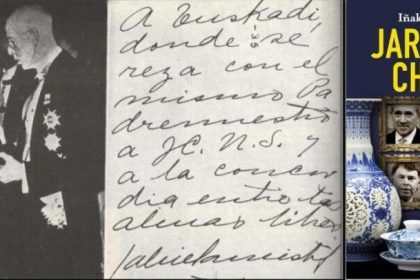 A Euskadi,
donde se
reza con el
mismo Pa
drenuestro
a J.C. N.S. y
a la concor
dia entre las
almas libres
Iñak
JAR
CH